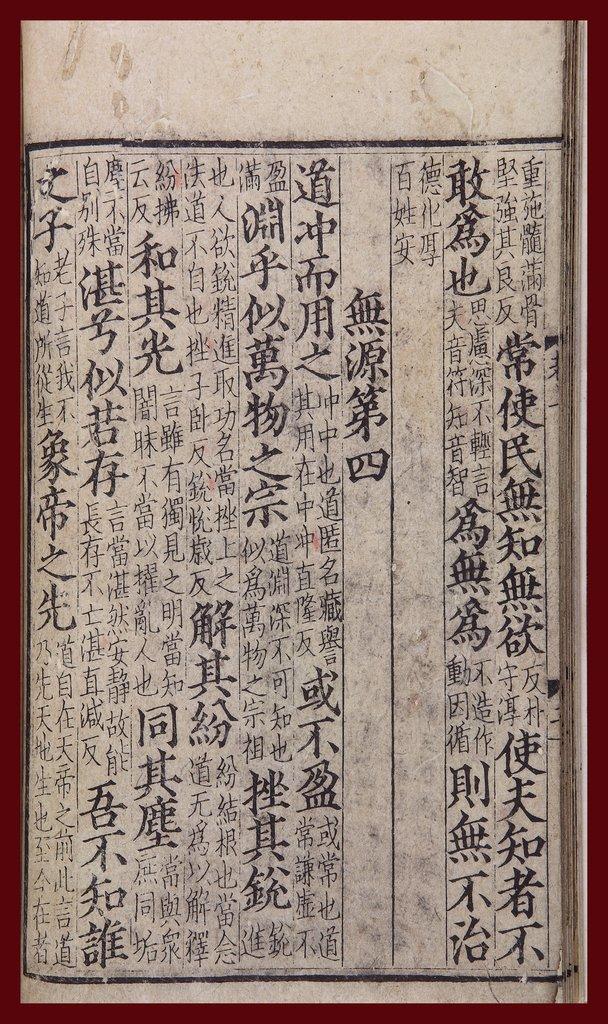 重施髓滿骨堅強其良反常使民無知無欲反朴守淳使夫知者不
敢為也思慮深不輕言夫音符知音智為無為不造作動因循則無不治
德化厚百姓安
無源第四
道冲而用之冲中也道匿名藏譽其用在中冲直隆反或不盈或常也道常謙虛不
盈滿淵乎似萬物之宗道淵深不可知也似為萬物之宗祖挫其銳銳進
也人欲銳精進取功名當挫上之法道不自也挫子卧反銳悅歲反解其紛紛結根也當念道无為以解釋
紛拂云反和其光言雖有獨見之明當知闇昧不當以擢亂人也同其塵當與衆庶同垢
塵不當自別殊湛兮似若存言當湛然安静故能長存不亡湛直減反吾不知誰
之子老子言我不知道所從生象帝之先道自在天帝之前此言道乃先天地生也至今在者